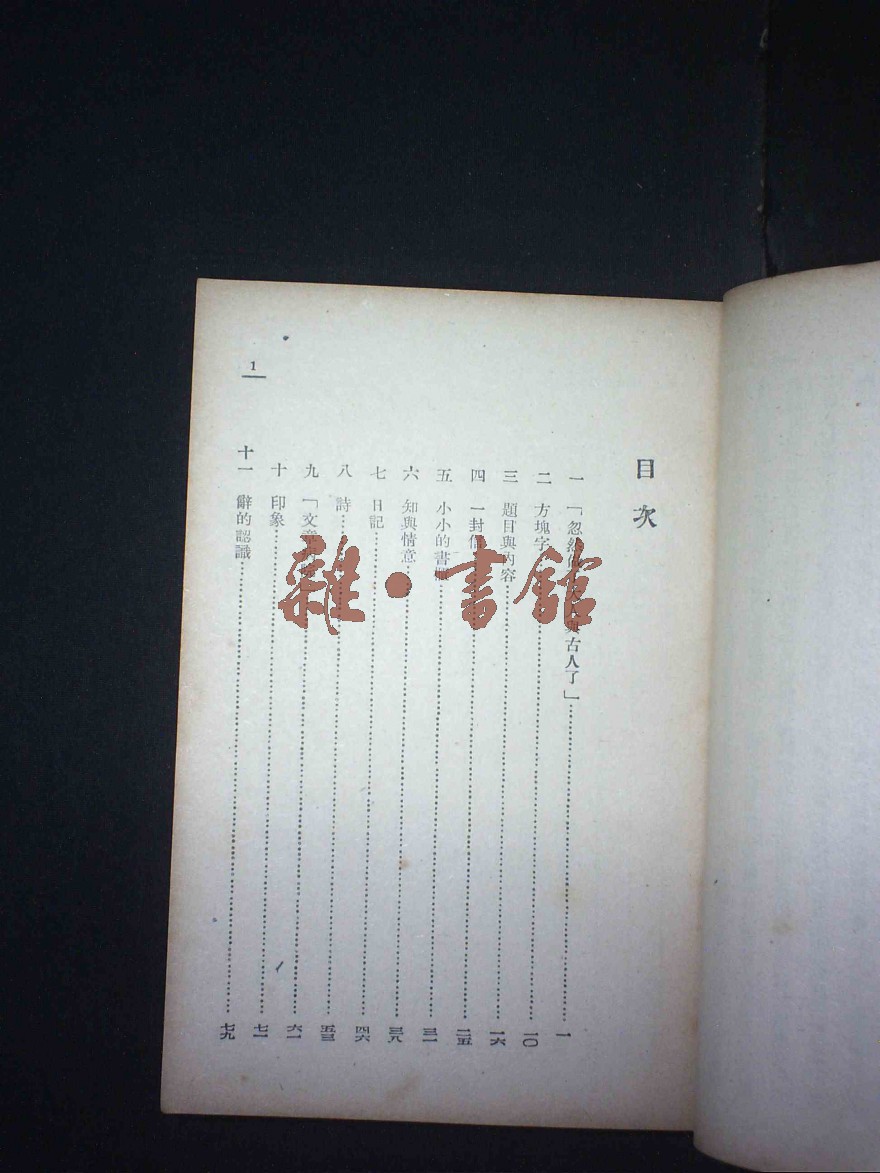 目次
一 「忽然做 與古人了」 一
二 方塊字 一〇
三 題目與內容 一六
四 一封信 二五
五 小小的書 三一
六 知與情意 三八
七 日記 四六
八 詩 五三
九 「文章 六一
十 印象 七一
十一 辭的認識 七九
1
雜·書館